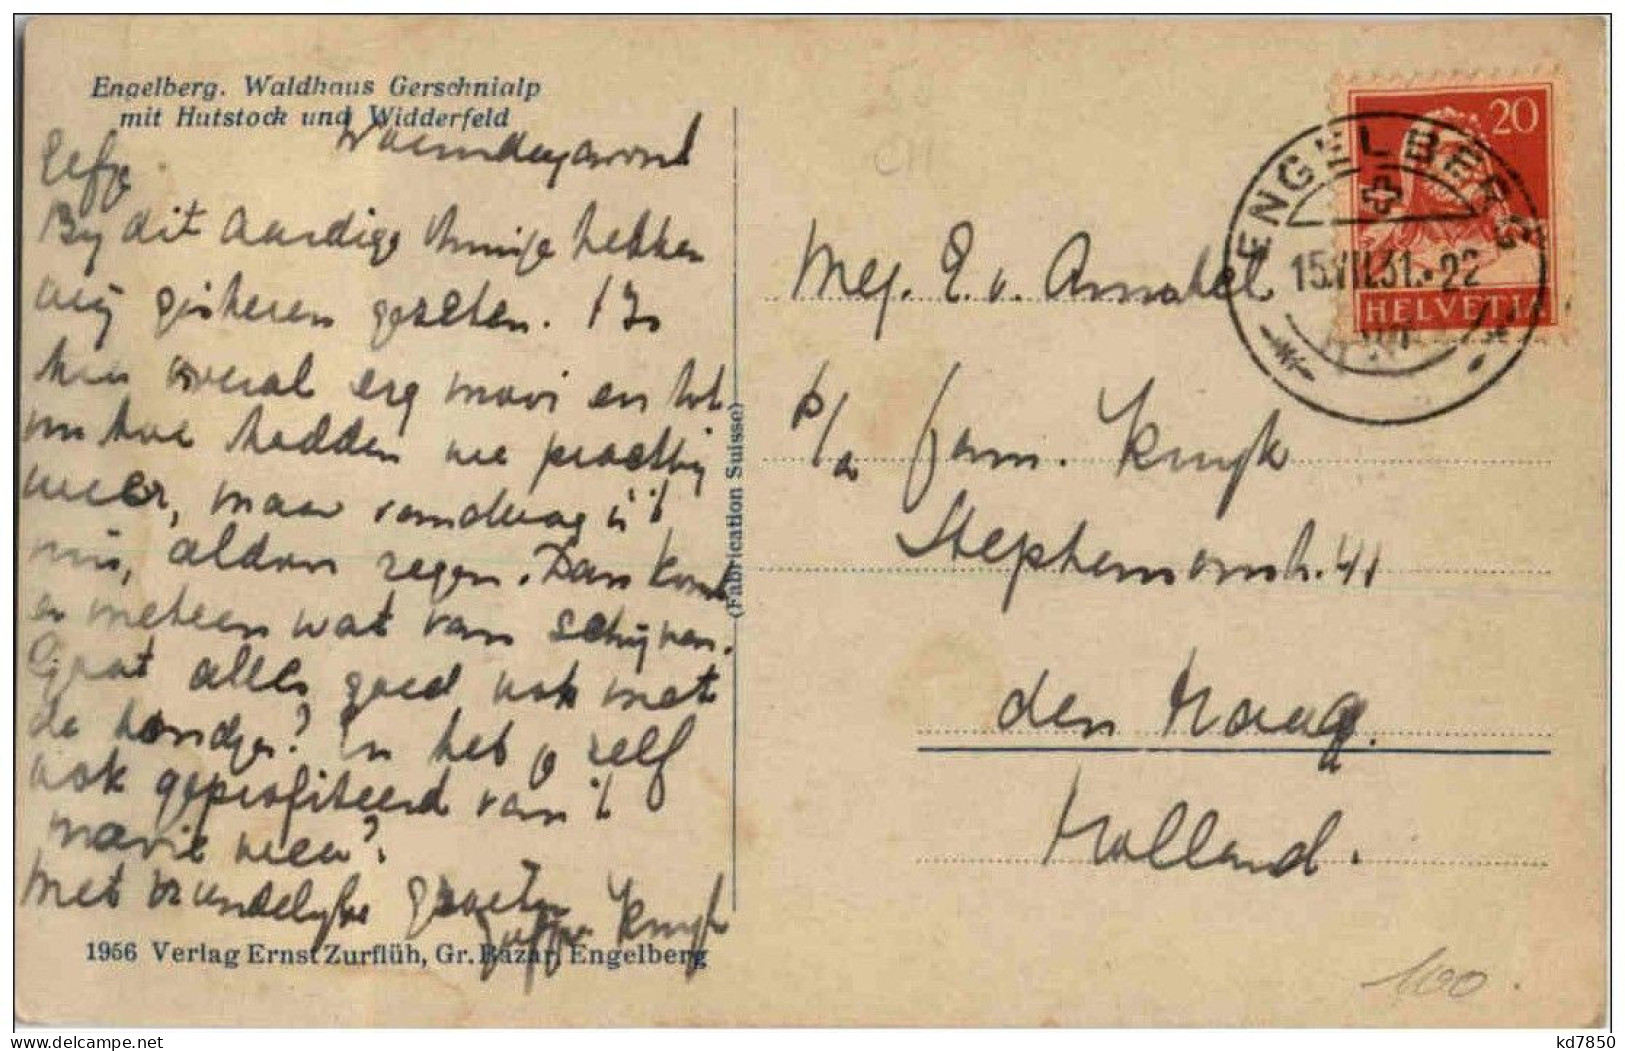 Engelberg. Waldhaus Gerschnialp
mit Hutstock und Widderfeld
Woensdagavond
Eefje
By dit aardige huisje hebben
wij gisteren gezeten. 't Is
hier overal erg mooi en tot
nu toe hadden we prachtig
weer, maar vandaag is 't
mis, aldoor regen. Dan komt
er meteen wat van schrijven.
Gaat alles goed, ook met
de hondjes? En heb je zelf
ook geprofiteerd van 't
mooie weer?
Met vriendelijke groeten
Kruyk
1956 Verlag Ernst Zurflüh, Gr. Bazar, Engelberg
(Fabrication Suisse)
20
HELVETIA
ENGELBERG
15.VII.31.-22
CH
Mej. E. v.
p/a fam. Kruyk
Stephensonstr. 41
den Haag.
Holland.
100.
delcampe.net
kd7850